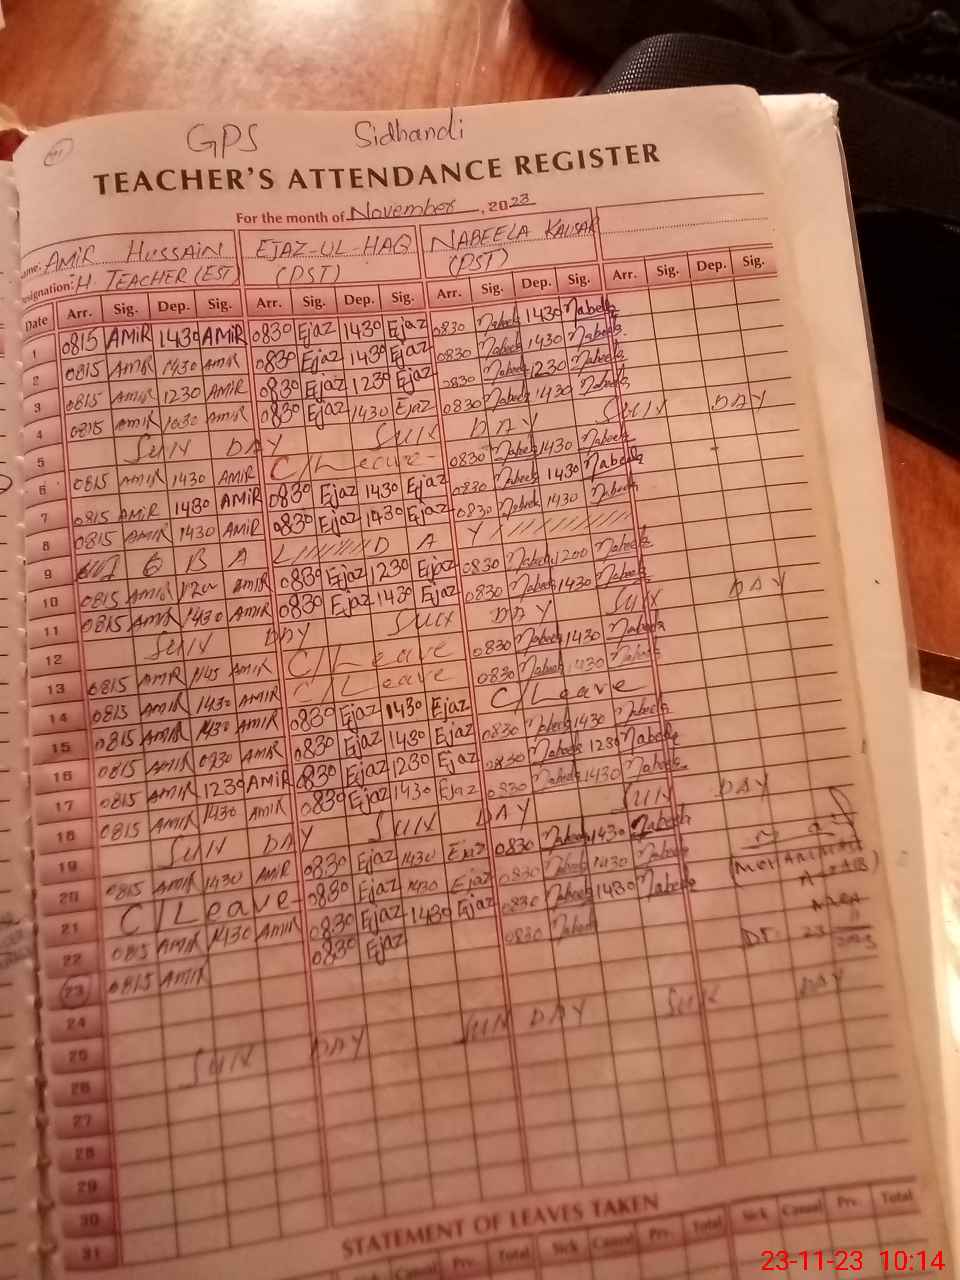 GPS Sidhandi
TEACHER'S ATTENDANCE REGISTER
For the month of November, 2023
AMIR HUSSAIN EJAZ-UL-HAQ NABEELA KAUSAR
H. TEACHER (EST) (PST) (PST)
Date Arr. Sig. Dep. Sig. Arr. Sig. Dep. Sig. Arr. Sig. Dep. Sig. Arr. Sig. Dep. Sig.
1 0815 AMIR 1430 AMIR 0830 Ejaz 1430 Ejaz 0830 Nabeela 1430 Nabeela
2 0815 AMIR 1430 AMIR 0830 Ejaz 1430 Ejaz 0830 Nabeela 1430 Nabeela
3 0815 AMIR 1230 AMIR 0830 Ejaz 1230 Ejaz 0830 Nabeela 1230 Nabeela
4 0815 AMIR 1030 AMIR 0830 Ejaz 1430 Ejaz 0830 Nabeela 1430 Nabeela
5 SUN DAY SUN DAY SUN DAY
6 0815 AMIR 1430 AMIR C/Leave 0830 Nabeela 1430 Nabeela
7 0815 AMIR 1430 AMIR 0830 Ejaz 1430 Ejaz 0830 Nabeela 1430 Nabeela
8 0815 AMIR 1430 AMIR 0830 Ejaz 1430 Ejaz 0830 Nabeela 1430 Nabeela
9 B A L D A Y
10 0815 AMIR 1200 AMIR 0830 Ejaz 1230 Ejaz 0830 Nabeela 1200 Nabeela
11 0815 AMIR 1430 AMIR 0830 Ejaz 1430 Ejaz 0830 Nabeela 1430 Nabeela
12 SUN DAY SUN DAY SUN DAY
13 0815 AMIR 1145 AMIR C/Leave 0830 Nabeela 1430 Nabeela
14 0815 AMIR 1430 AMIR C/Leave 0830 Nabeela 1430 Nabeela
15 0815 AMIR 1430 AMIR 0830 Ejaz 1430 Ejaz C/Leave
16 0815 AMIR 0930 AMIR 0830 Ejaz 1430 Ejaz 0830 Nabeela 1430 Nabeela
17 0815 AMIR 1230 AMIR 0830 Ejaz 1230 Ejaz 0830 Nabeela 1230 Nabeela
18 0815 AMIR 1430 AMIR 0830 Ejaz 1430 Ejaz 0830 Nabeela 1430 Nabeela
19 SUN DAY SUN DAY SUN DAY
20 0815 AMIR 1430 AMIR 0830 Ejaz 1430 Ejaz 0830 Nabeela 1430 Nabeela
21 C/Leave 0830 Ejaz 1430 Ejaz 0830 Nabeela 1430 Nabeela
22 0815 AMIR 1430 AMIR 0830 Ejaz 1430 Ejaz 0830 Nabeela 1430 Nabeela
23 0815 AMIR 0830 Ejaz 0830 Nabeela
DT: 23 11 2023
24
25
26 SUN DAY SUN DAY SUN DAY
27
28
29
30
31
STATEMENT OF LEAVES TAKEN
Sick Casual Prv. Total Sick Casual Prv. Total Sick Casual Prv. Total
23-11-23 10:14